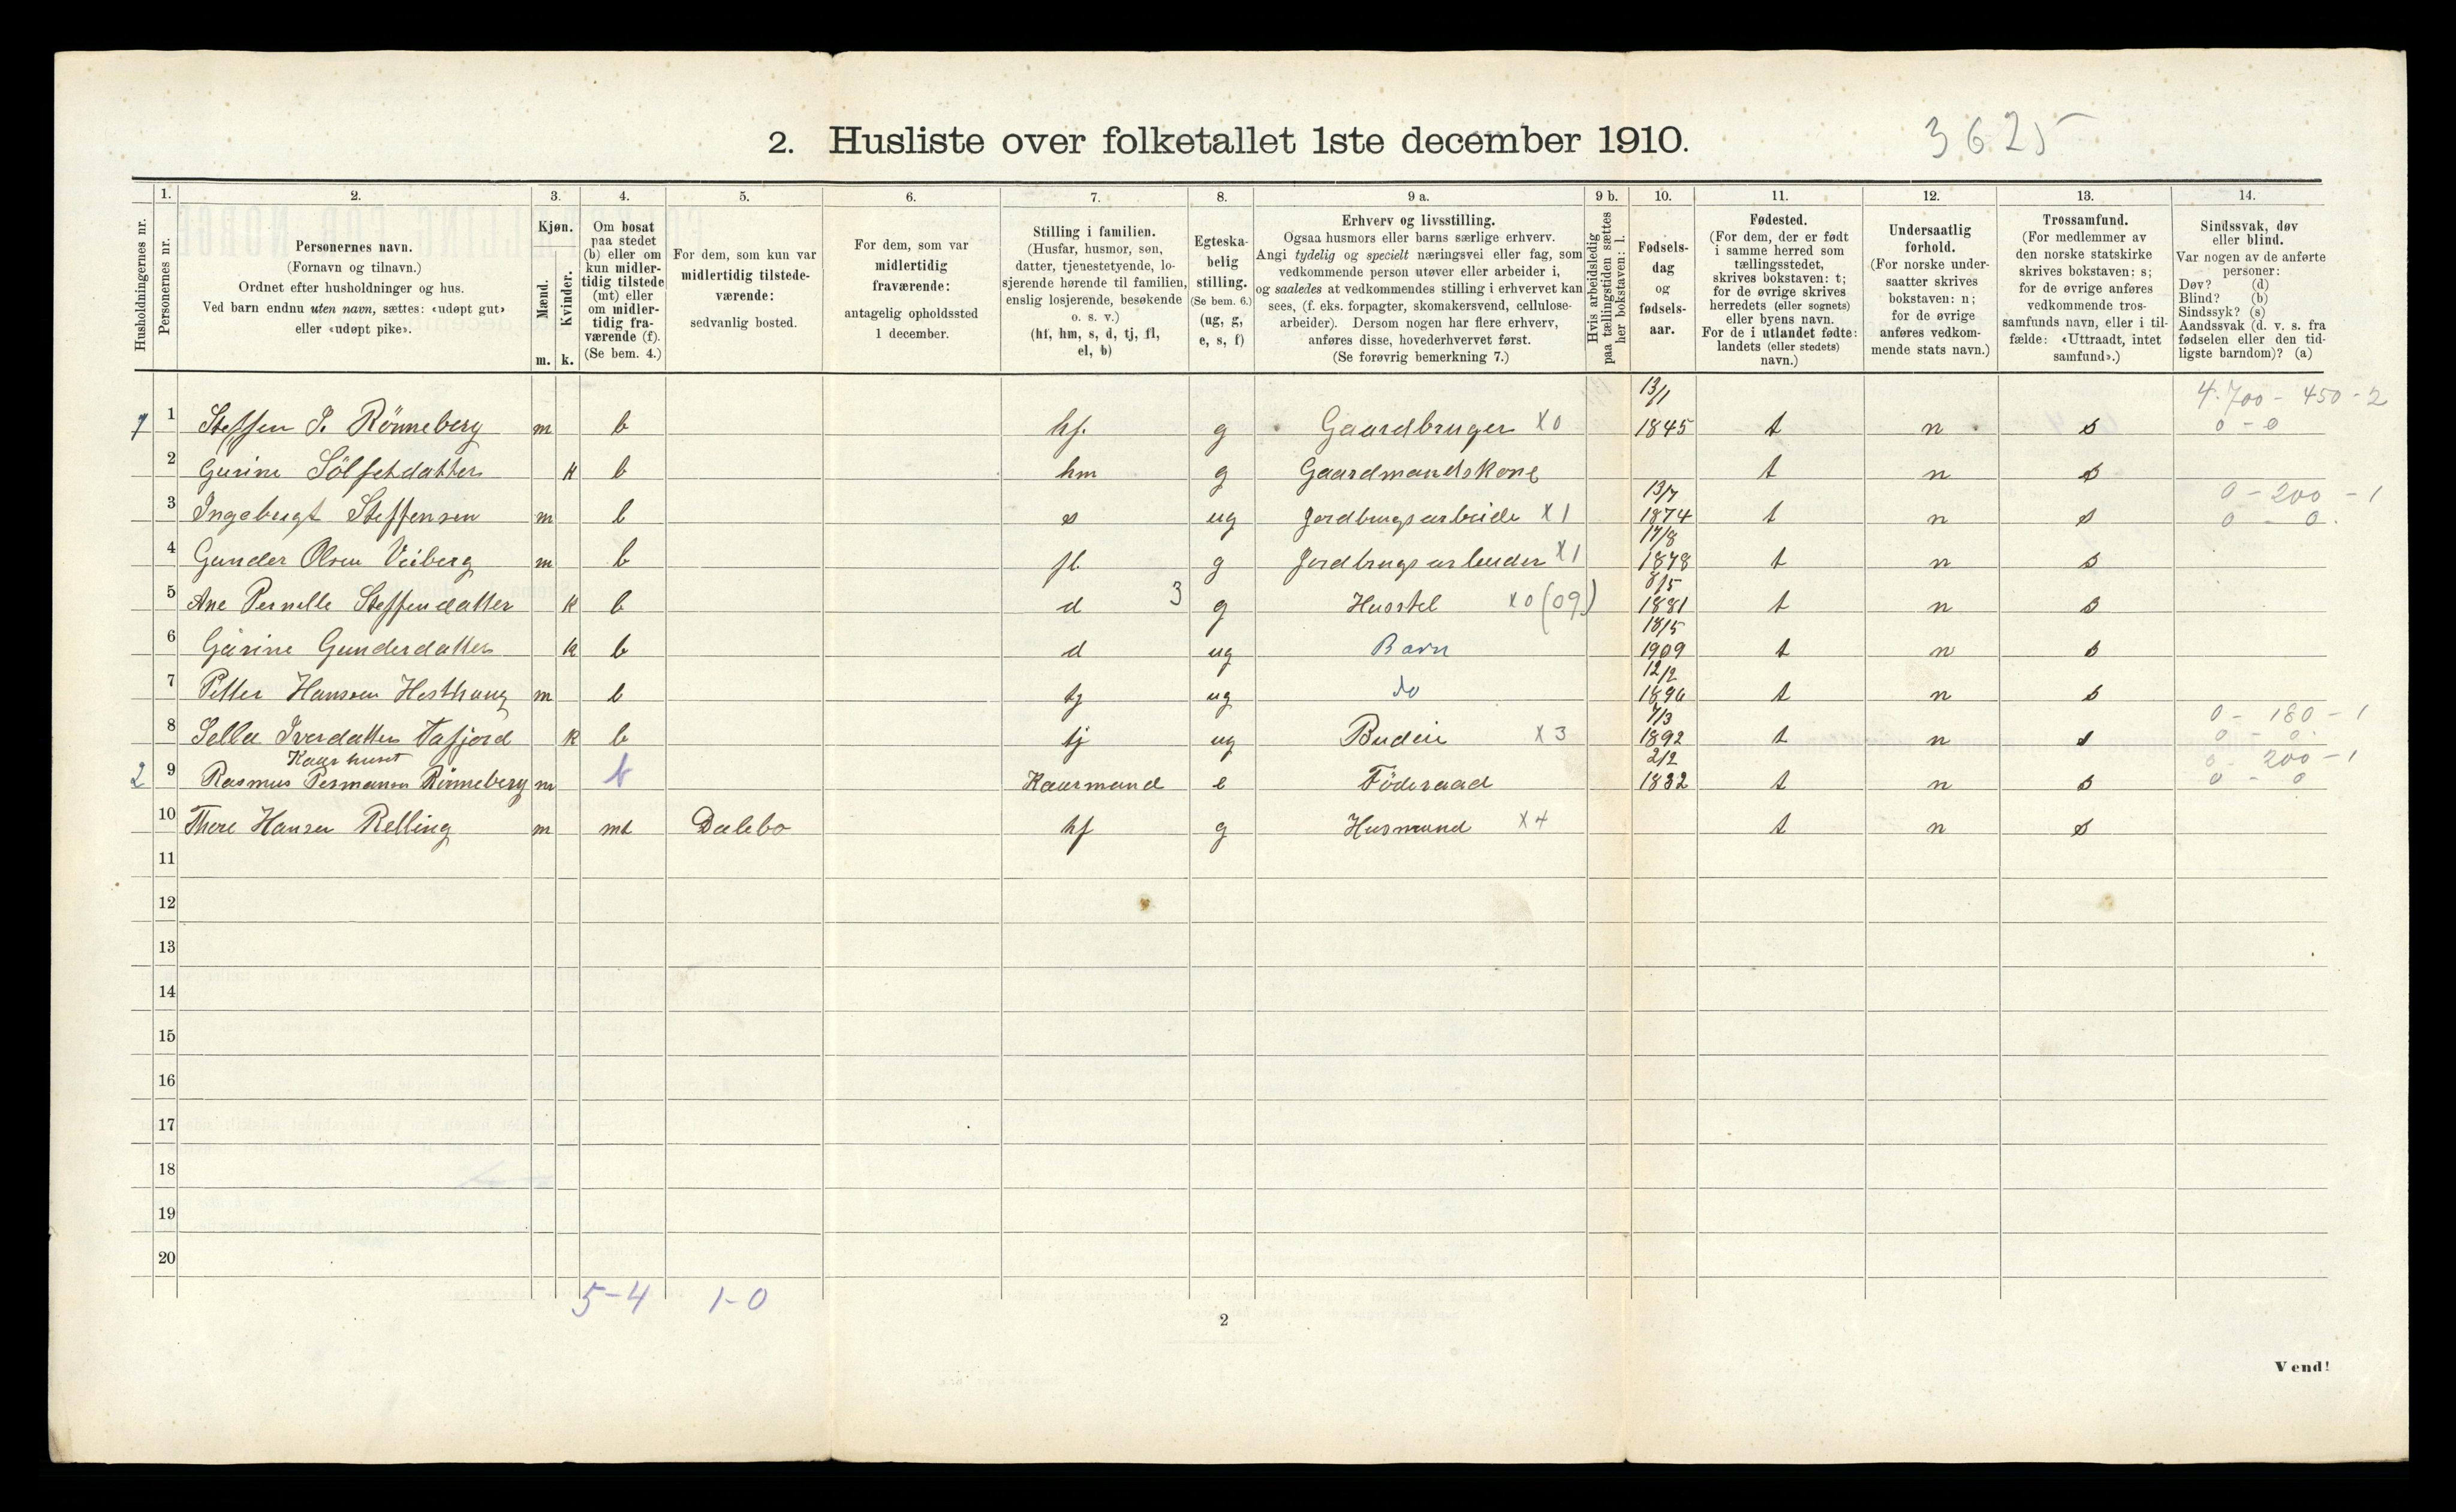 2. Husliste over folketallet 1ste december 1910.
3625
Husholdningernes nr.
1.
Personernes nr.
2.
Personernes navn.
(Fornavn og tilnavn.)
Ordnet efter husholdninger og hus.
Ved barn endnu uten navn, sættes: «udøpt gut»
eller «udøpt pike».
3.
Kjøn.
Mænd.
m.
Kvinder.
k.
4.
Om bosat
paa stedet
(b) eller om
kun midler-
tidig tilstede
(mt) eller
om midler-
tidig fra-
værende (f).
(Se bem. 4.)
5.
For dem, som kun var
midlertidig tilstede-
værende:
sedvanlig bosted.
6.
For dem, som var
midlertidig
fraværende:
antagelig opholdssted
1 december.
7.
Stilling i familien.
(Husfar, husmor, søn,
datter, tjenestetyende, lo-
sjerende hørende til familien,
enslig losjerende, besøkende
o. s. v.)
(hf, hm, s, d, tj, fl,
el, b)
8.
Egteska-
belig
stilling.
(Se bem. 6.)
(ug, g,
e, s, f)
9 a.
Erhverv og livsstilling.
Ogsaa husmors eller barns særlige erhverv.
Angi tydelig og specielt næringsvei eller fag, som
vedkommende person utøver eller arbeider i,
og saaledes at vedkommendes stilling i erhvervet kan
sees, (f. eks. forpagter, skomakersvend, cellulose-
arbeider). Dersom nogen har flere erhverv,
anføres disse, hovederhvervet først.
(Se forøvrig bemerkning 7.)
9 b.
Hvis arbeidsledig
paa tællingstiden sættes
her bokstaven: l.
10.
Fødsels-
dag
og
fødsels-
aar.
11.
Fødested.
(For dem, der er født
i samme herred som
tællingsstedet,
skrives bokstaven: t;
for de øvrige skrives
herredets (eller sognets)
eller byens navn.
For de i utlandet fødte:
landets (eller stedets)
navn.)
12.
Undersaatlig
forhold.
(For norske under-
saatter skrives
bokstaven: n;
for de øvrige
anføres vedkom-
mende stats navn.)
13.
Trossamfund.
(For medlemmer av
den norske statskirke
skrives bokstaven: s;
for de øvrige anføres
vedkommende tros-
samfunds navn, eller i til-
fælde: «Uttraadt, intet
samfund».)
14.
Sindssvak, døv
eller blind.
Var nogen av de anførte
personer:
Døv? (d)
Blind? (b)
Sindssyk? (s)
Aandssvak (d. v. s. fra
fødselen eller den tid-
ligste barndom)? (a)
13/1 4.700 - 450 - 2
1 1 Steffen I. Rönneberg m b hf. g Gaardbruger X0 1845 t n s 0 - 0
2 Gurine Sölfestdatter K b hm g Gaardmandskone t n s
13/7 0 - 200 - 1
3 Ingebrigt Steffensen m b s ug Jordbrugsarbeide X1 1874 t n s 0 - 0.
17/8
4 Gunder Olsen Veiberg m b fl g Jordbrugsarbeider X1 1878 t n s
8/5
5 Ane Pernelle Steffendatter K b d 3 g Husstel X0 (09) 1881 t n s
18/5
6 Gurine Gunderdatter K b d ug Barn 1909 t n s
12/2
7 Petter Hansen Hesthaug m b tj ug do 1896 t n s
7/3 0 - 180 - 1
8 Sella Iverdatter Tafjord K b tj ug Budeie X3 1892 t n s 0 - 0.
Kaarhuset 2/2 0 - 200 - 1
2 9 Rasmus Permanm Rönneberg m b Kaarmand e Föderaad 1832 t n s 0 - 0
10 Thore Hansen Relling m mt Dalebo hf g Husmand X4 t n s
11
12
13
14
15
16
17
18
19
20
5-4 1-0
2
Vend!